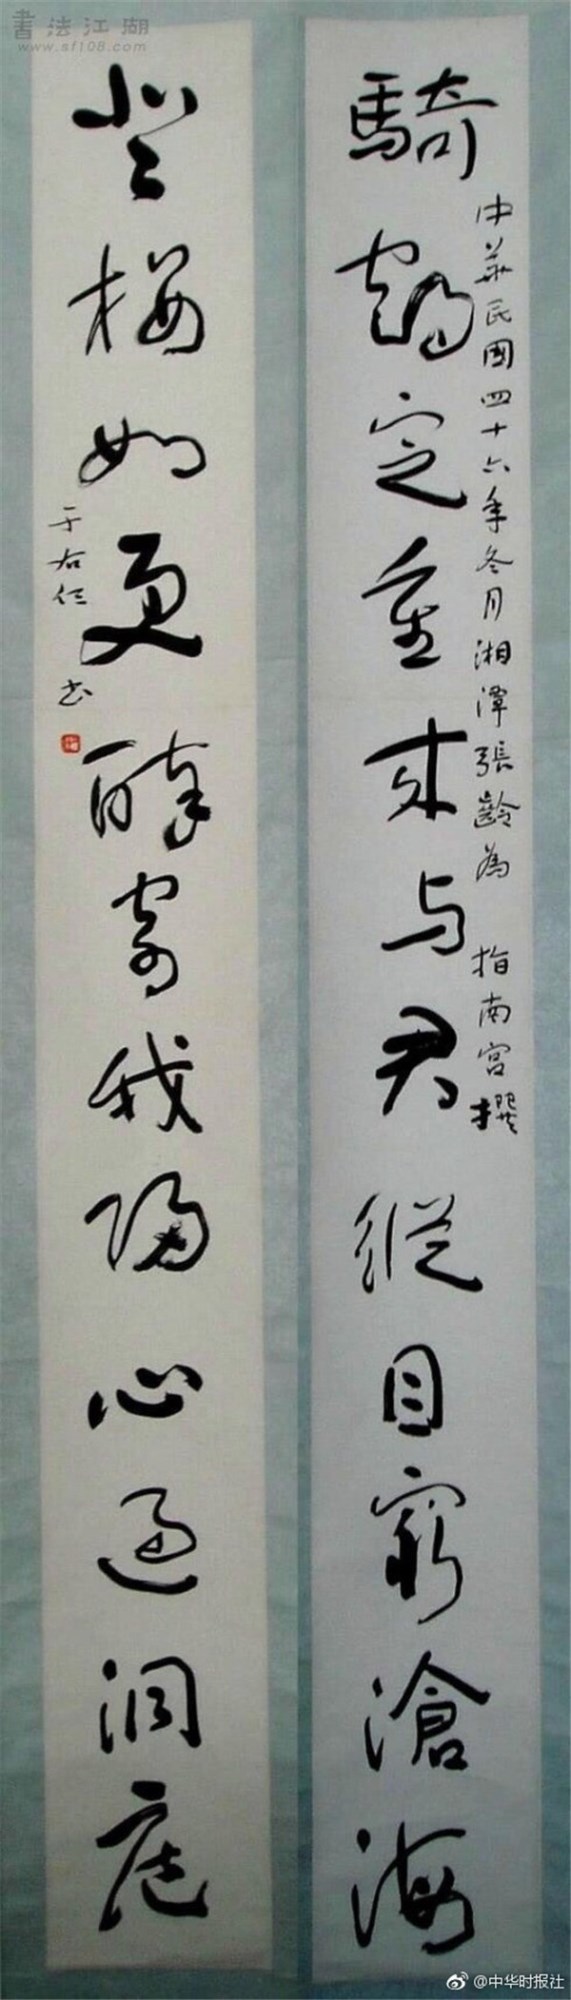 騎鶴定重來与君縱目窮滄海
中華民國四十六年冬月湘潭張齡為 指南宮撰
登樓如更醉寄我歸心過洞庭
于右任 书
書法江湖
www.sf108.com
@中华时报社